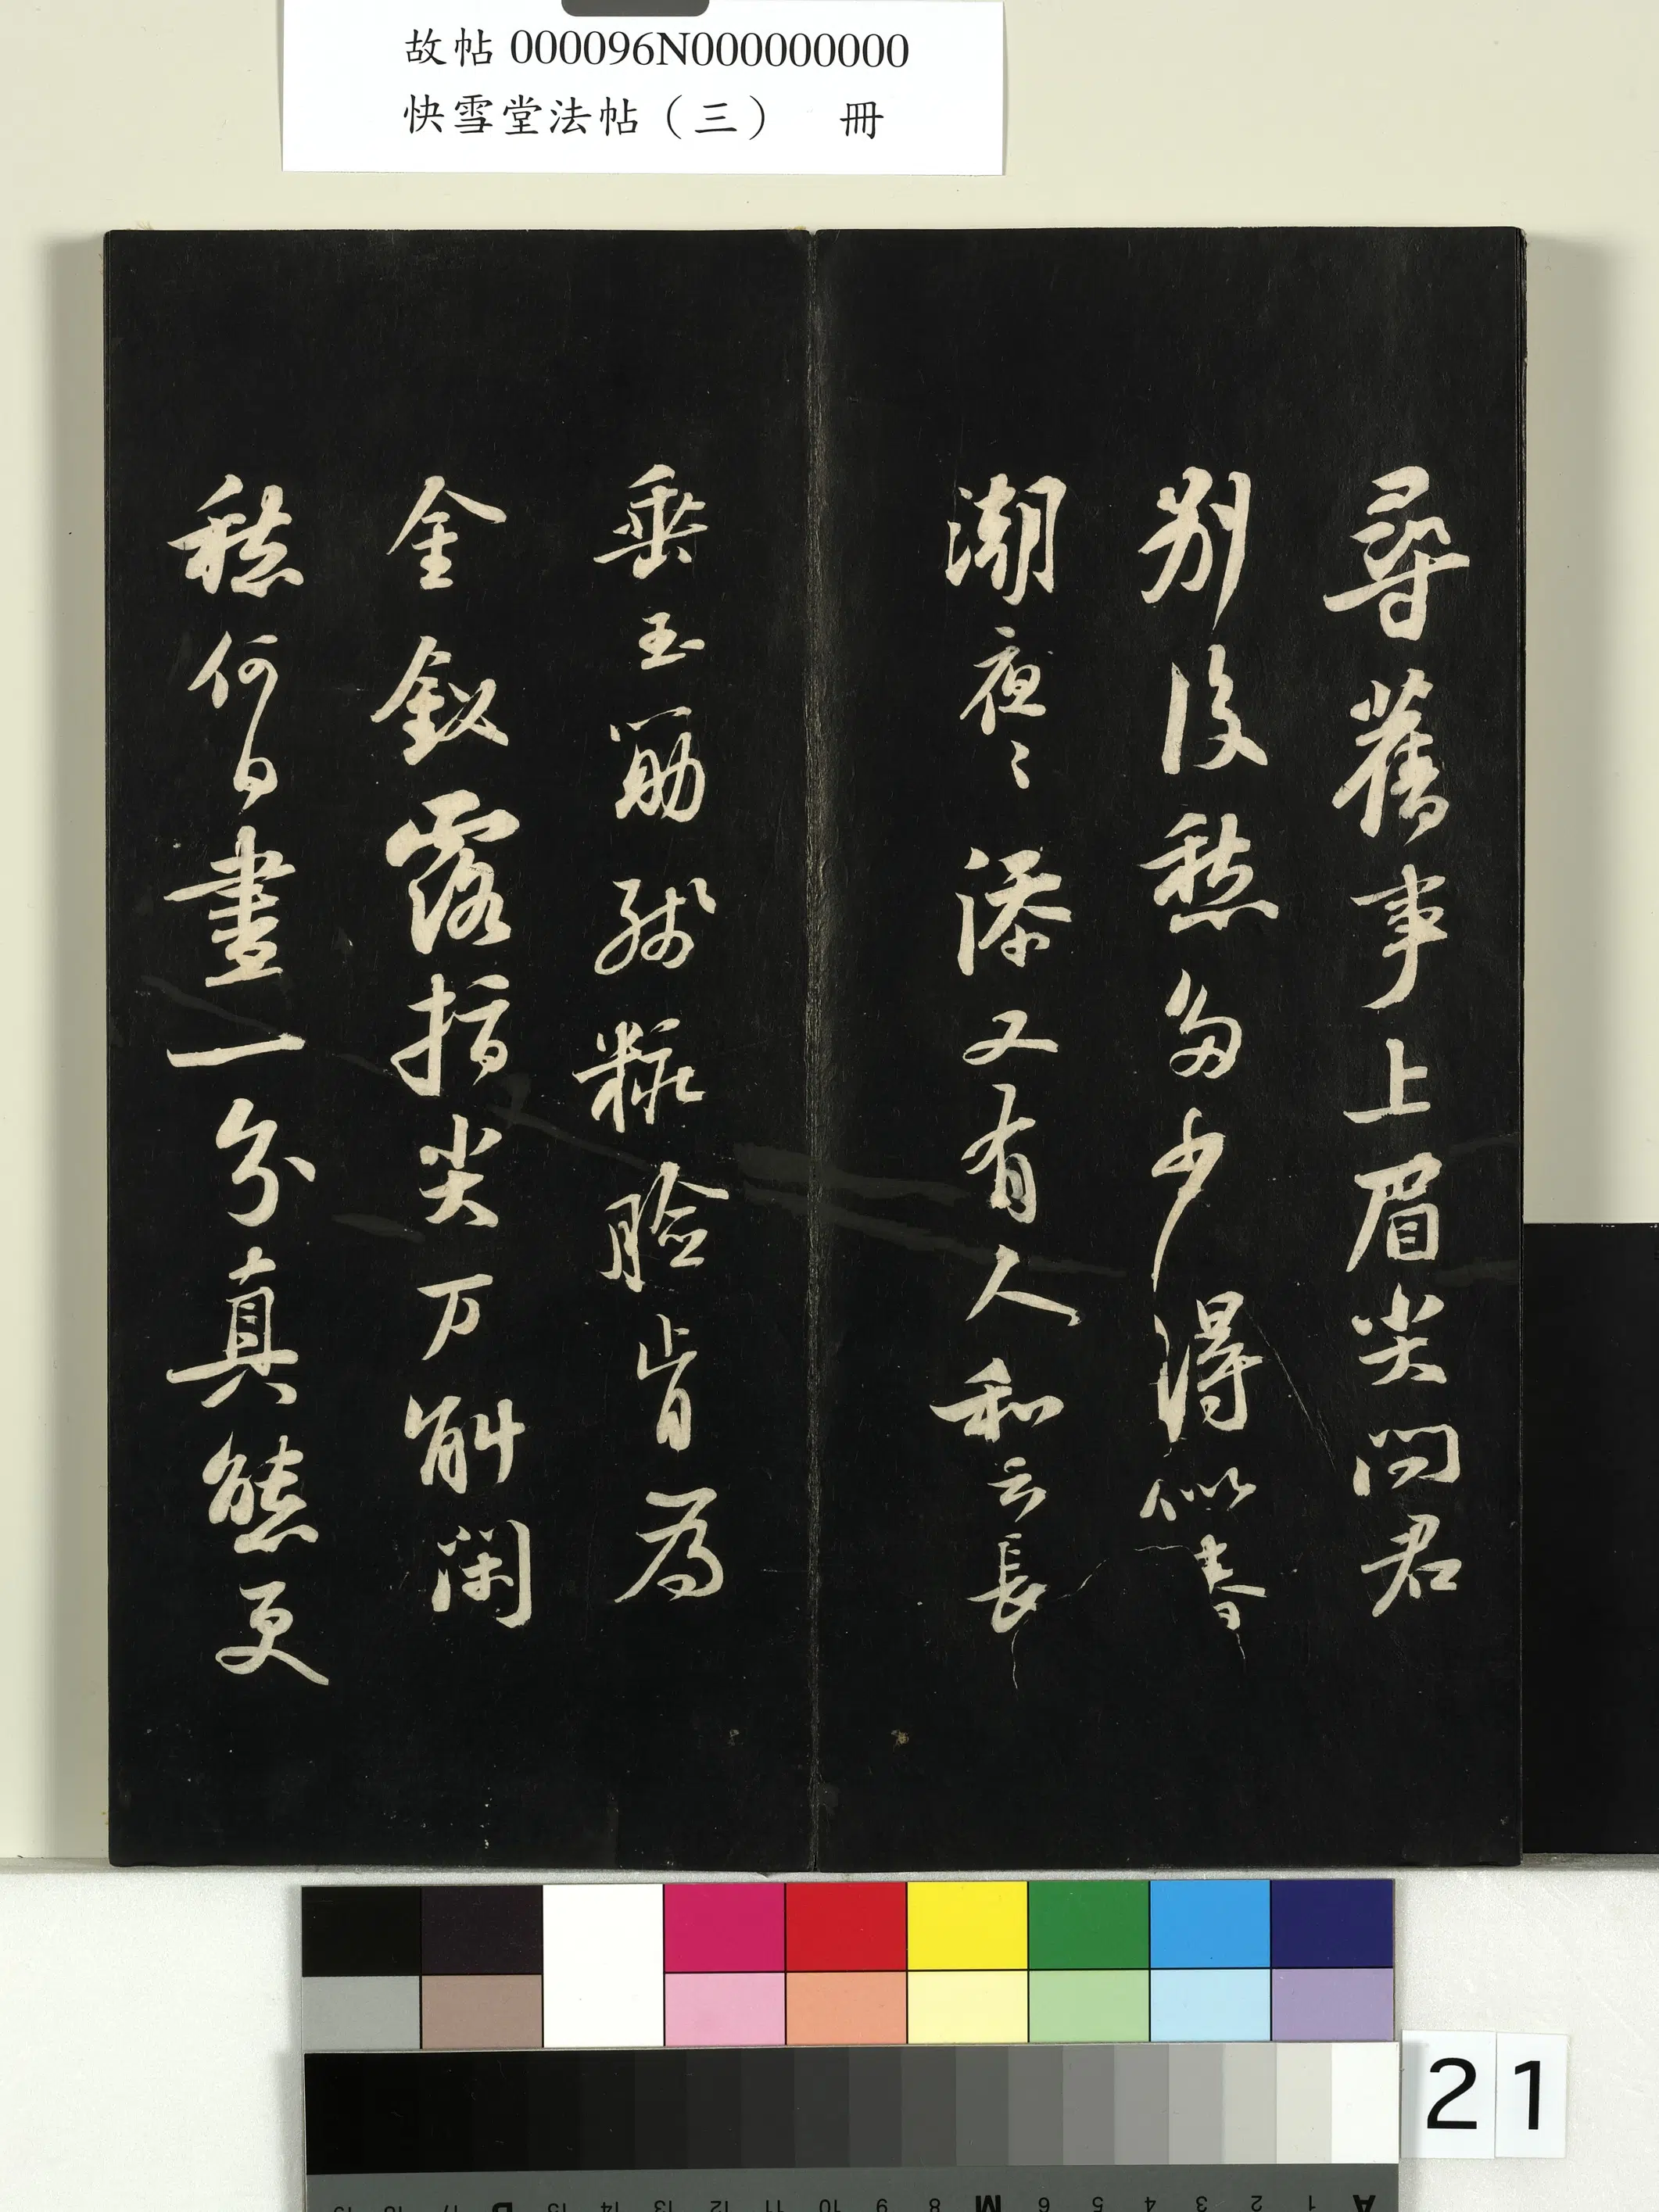 故帖 000096N000000000
快雪堂法帖（三）　冊
尋舊事上眉尖問君
別後愁多少得似春
潮夜〻添又有人和云長
垂玉筯殘粧臉肯為
金釵露指尖万斛閑
愁何日盡一分真態更
21